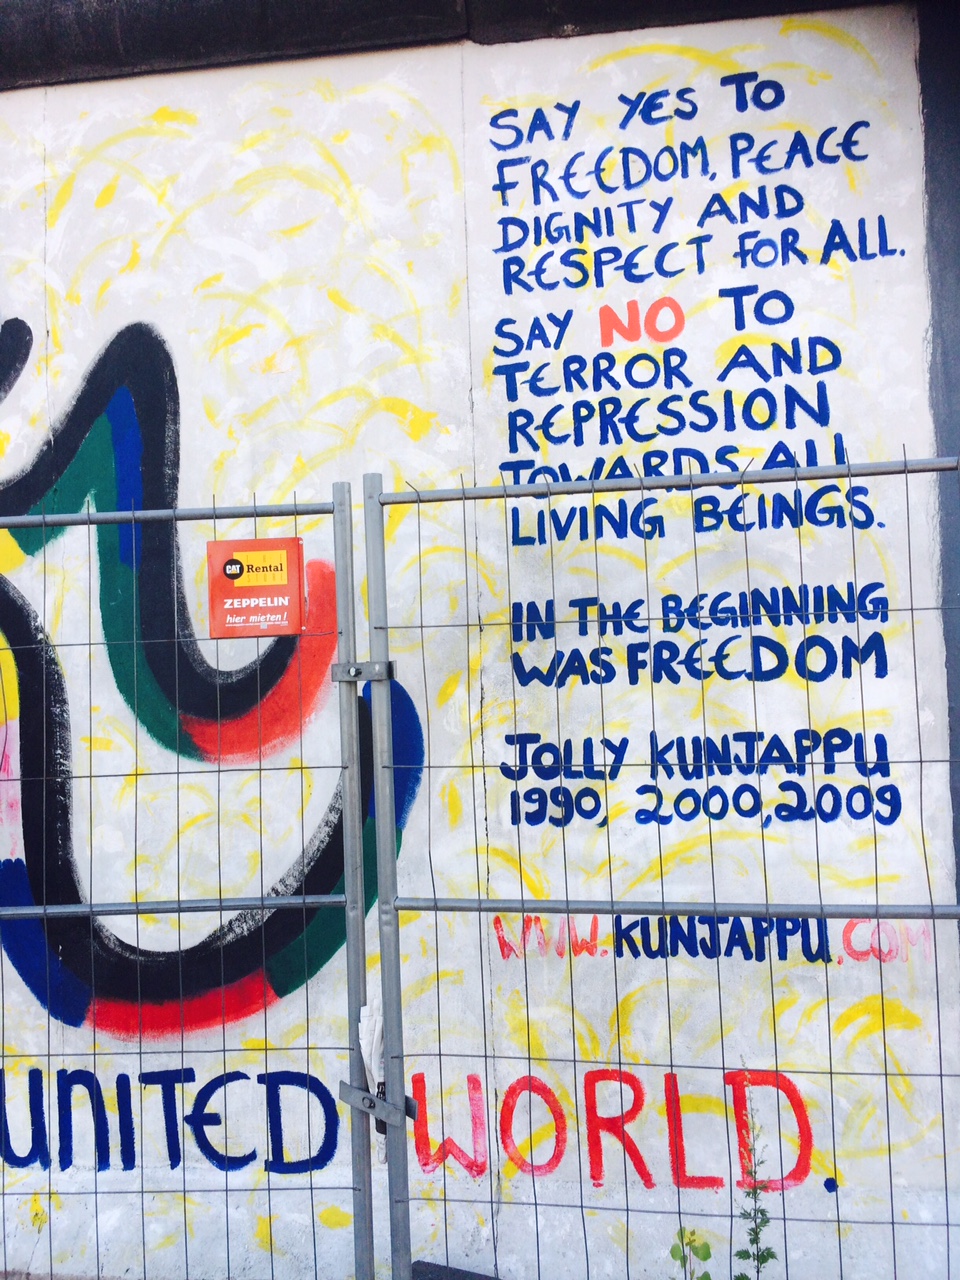 SAY YES TO
FREEDOM, PEACE
DIGNITY AND
RESPECT FOR ALL.
SAY NO TO
TERROR AND
REPRESSION
TOWARDS ALL
LIVING BEINGS.
IN THE BEGINNING
WAS FREEDOM
JOLLY KUNJAPPU
1990, 2000, 2009
WWW.KUNJAPPU.COM
UNITED WORLD.
CAT Rental
ZEPPELIN
hier mieten!